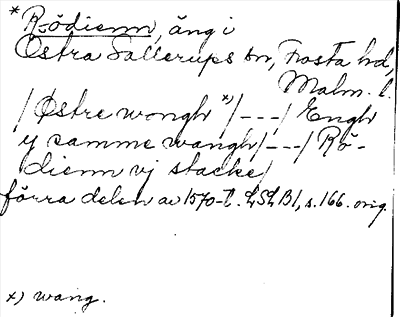 * Rödienn, äng i
Östra Sallerups sn, Frosta hd,
Malm. l.
/Østre wongh x)/---/ Engh
y samme wangh/---/ Rö-
dienn vj stacke/
förra delen av 1570-t. LSLB1, s. 166. orig.
x) wang.